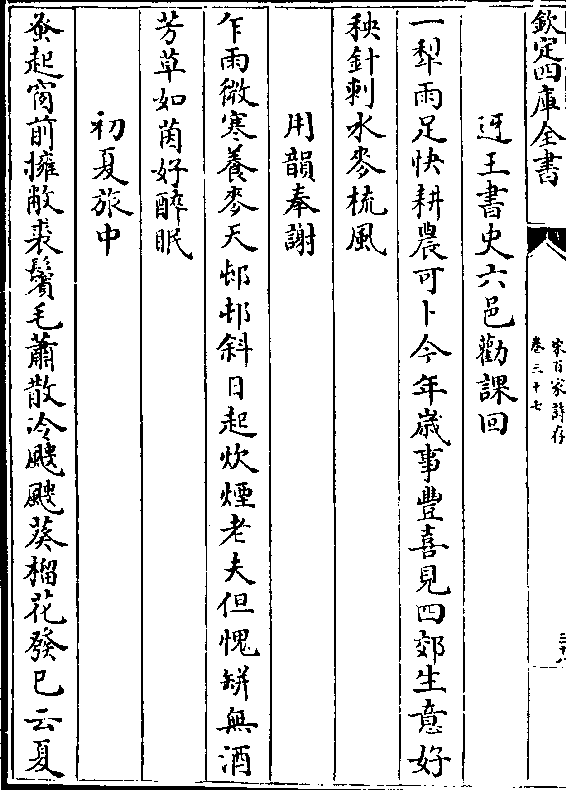 欽定四庫全書
宋百家詩存
卷三十七
迓王書史六邑勸課回
一犂雨足快耕農可卜今年歲事豐喜見四郊生意好
秧針刺水麥梳風
用韻奉謝
乍雨微寒養麥天邨邨斜日起炊煙老夫但愧缾無酒
芳草如茵好醉眠
初夏旅中
蚤起窗前擁敝裘鬢毛蕭散冷颼颼葵榴花發已云夏